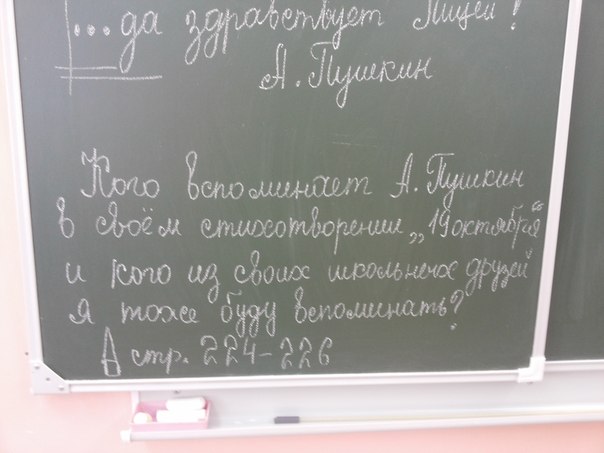 ...да здравствует Лицей!
А. Пушкин
Кого вспоминает А. Пушкин
в своём стихотворении „19 октября“
и кого из своих школьных друзей
я тоже буду вспоминать?
стр. 224-226